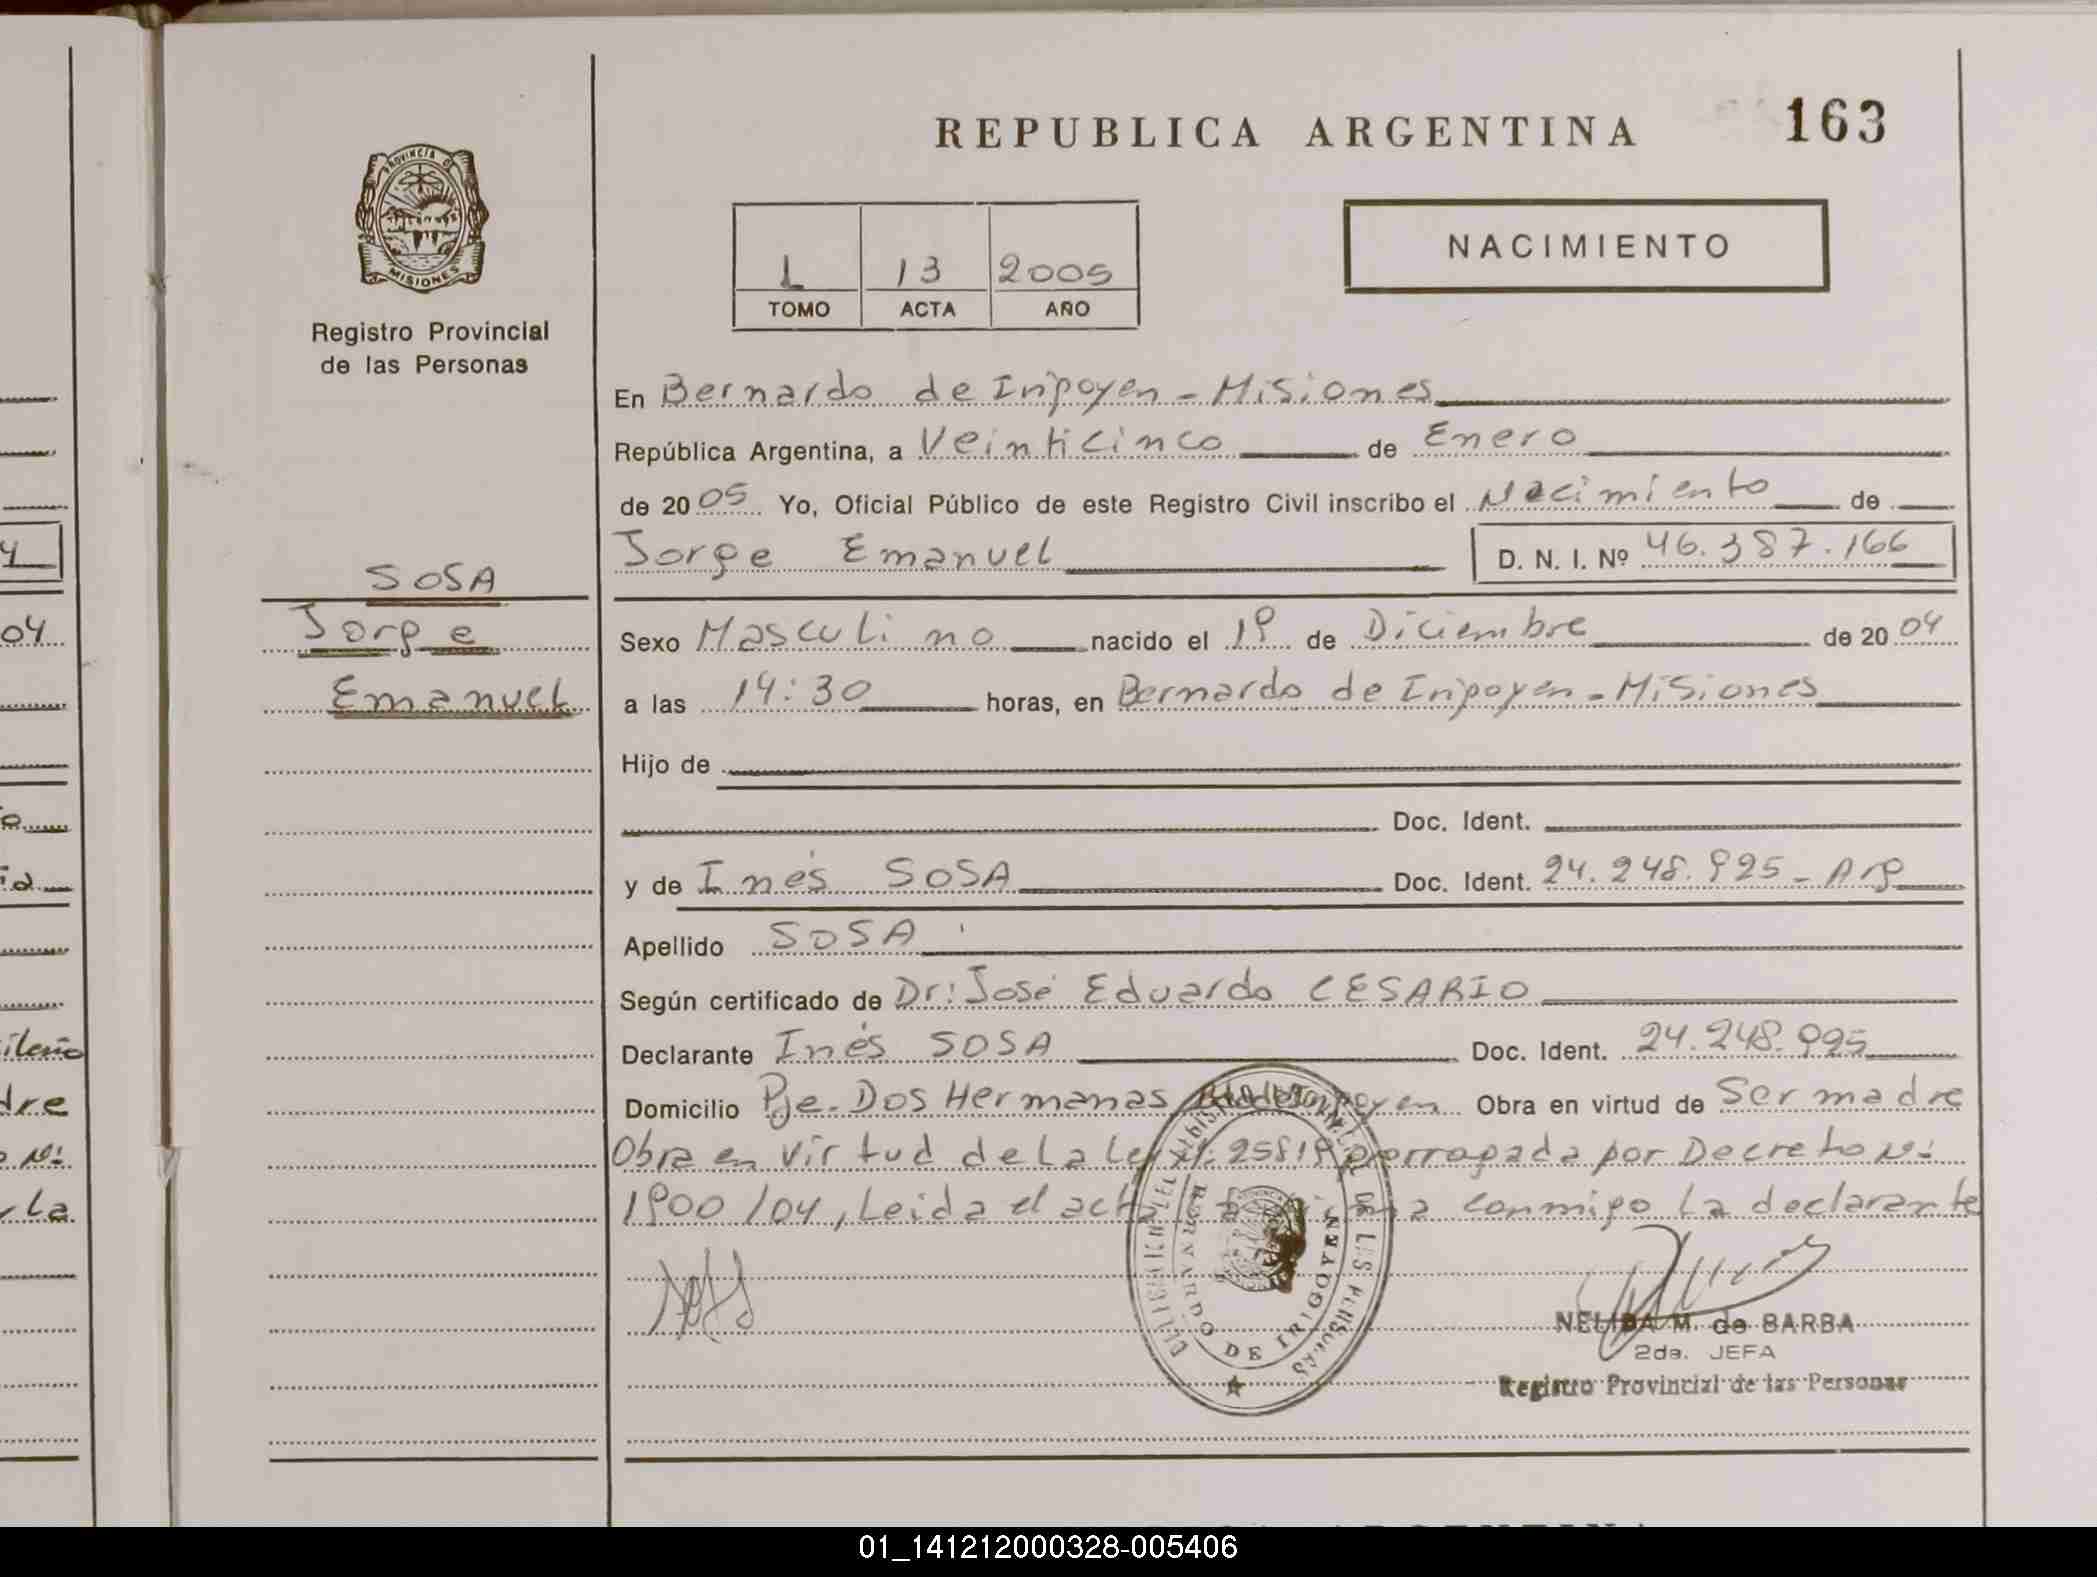 REPUBLICA ARGENTINA 163
PROVINCIA D
MISIONES
Registro Provincial
de las Personas
1 13 2005
TOMO ACTA AÑO
NACIMIENTO
En Bernardo de Iripoyen - Misiones
República Argentina, a Veinticinco de Enero
de 2005 Yo, Oficial Público de este Registro Civil inscribo el Nacimiento de
Jorge Emanuel D. N. I. Nº 46.387.166
SOSA
Jorge
Emanuel
Sexo Masculino nacido el 19 de Diciembre de 2004
a las 14:30 horas, en Bernardo de Iripoyen - Misiones
Hijo de
Doc. Ident.
y de Inés SOSA Doc. Ident. 24.248.995 - Arg
Apellido SOSA
Según certificado de Dr: José Eduardo CESARIO
Declarante Inés SOSA Doc. Ident. 24.248.995
Domicilio Pje. Dos Hermanas Obra en virtud de Ser madre
Obra en virtud de La Ley N: 25819 prorrogada por Decreto N:
1900/04, Leida el acta conmigo La declarante
BERNARDO DE IRIGOYEN
DE LAS PERSONAS
NELIDA M. de BARBA
2da. JEFA
Registro Provincial de las Personas
4
04
ileño
dre
N:
La
01_141212000328-005406